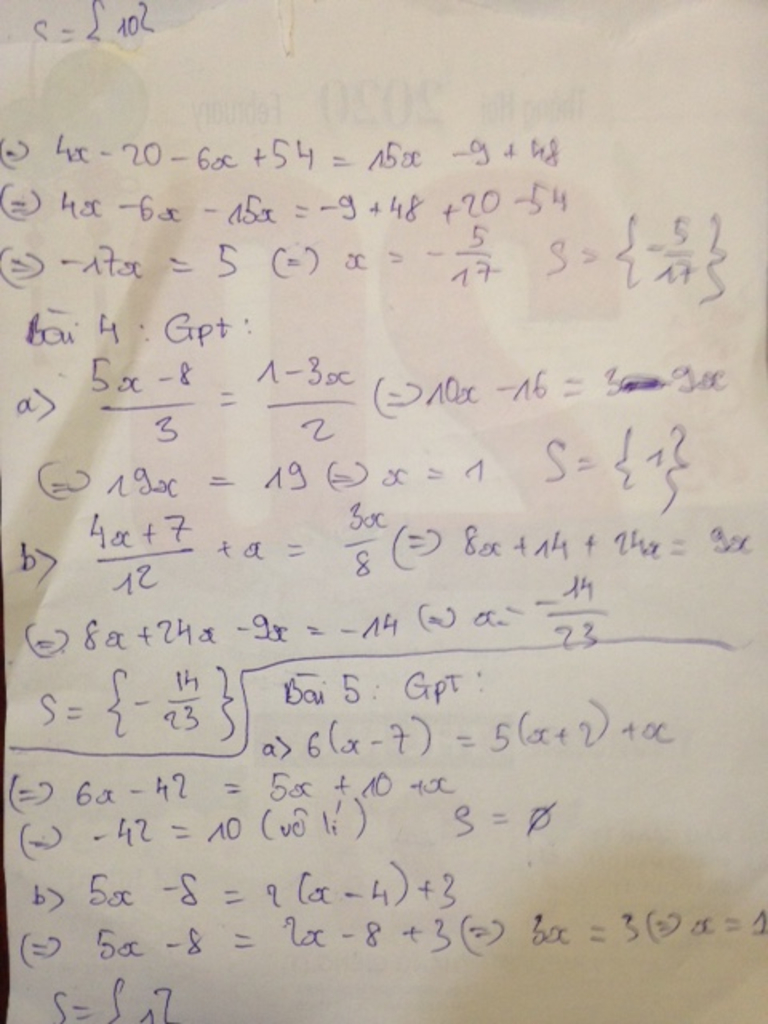 S = {10}
Tháng Hai 2020 February
(=) 4x - 20 - 6x + 54 = 15x - 9 + 48
(=) 4x - 6x - 15x = -9 + 48 + 20 - 54
(=) -17x = 5 (=) x = -5/17 S = {-5/17}
Bài 4 : Gpt :
a> (5x - 8)/3 = (1 - 3x)/2 (=) 10x - 16 = 3 - 9x
(=) 19x = 19 (=) x = 1 S = {1}
b> (4x + 7)/12 + x = 3x/8 (=) 8x + 14 + 24x = 9x
(=) 8x + 24x - 9x = -14 (=) x = -14/23
S = {-14/23}
Bài 5 : Gpt :
a> 6(x - 7) = 5(x + 2) + x
(=) 6x - 42 = 5x + 10 + x
(=) -42 = 10 (vô lí) S = ∅
b> 5x - 8 = 2(x - 4) + 3
(=) 5x - 8 = 2x - 8 + 3 (=) 3x = 3 (=) x = 1
S = {1}